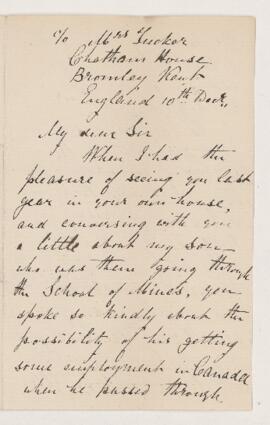 c/o Mrs Tucker
Chatham House
Bromley Kent
England 10th Decr.
My dear Sir
When I had the
pleasure of seeing you last
year in your own house,
and conversing with you
a little about my son
who was then going through
the School of Mines, you
spoke so kindly about the
possibility of his getting
some employment in Canada
when he passed through.